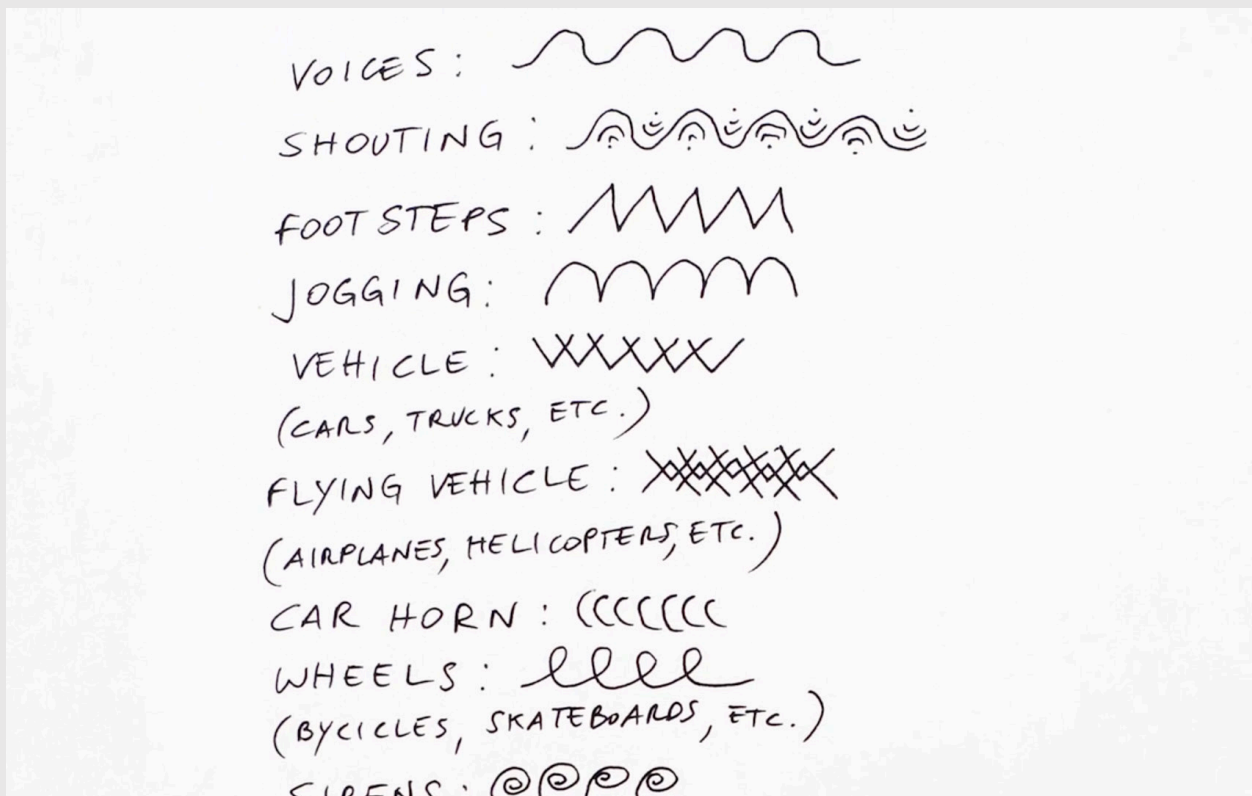 VOICES:
SHOUTING:
FOOTSTEPS:
JOGGING:
VEHICLE:
(CARS, TRUCKS, ETC.)
FLYING VEHICLE:
(AIRPLANES, HELICOPTERS, ETC.)
CAR HORN:
WHEELS:
(BYCICLES, SKATEBOARDS, ETC.)
SIRENS: